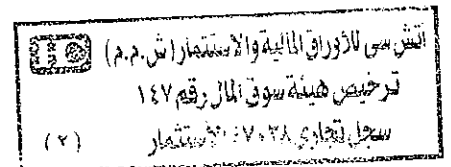 اتش سى للأوراق المالية والاستثمار (ش.م.م)
ترخيص هيئة سوق المال رقم ١٤٧
سجل تجارى ٧٠٢٨ الاستثمار (٢)